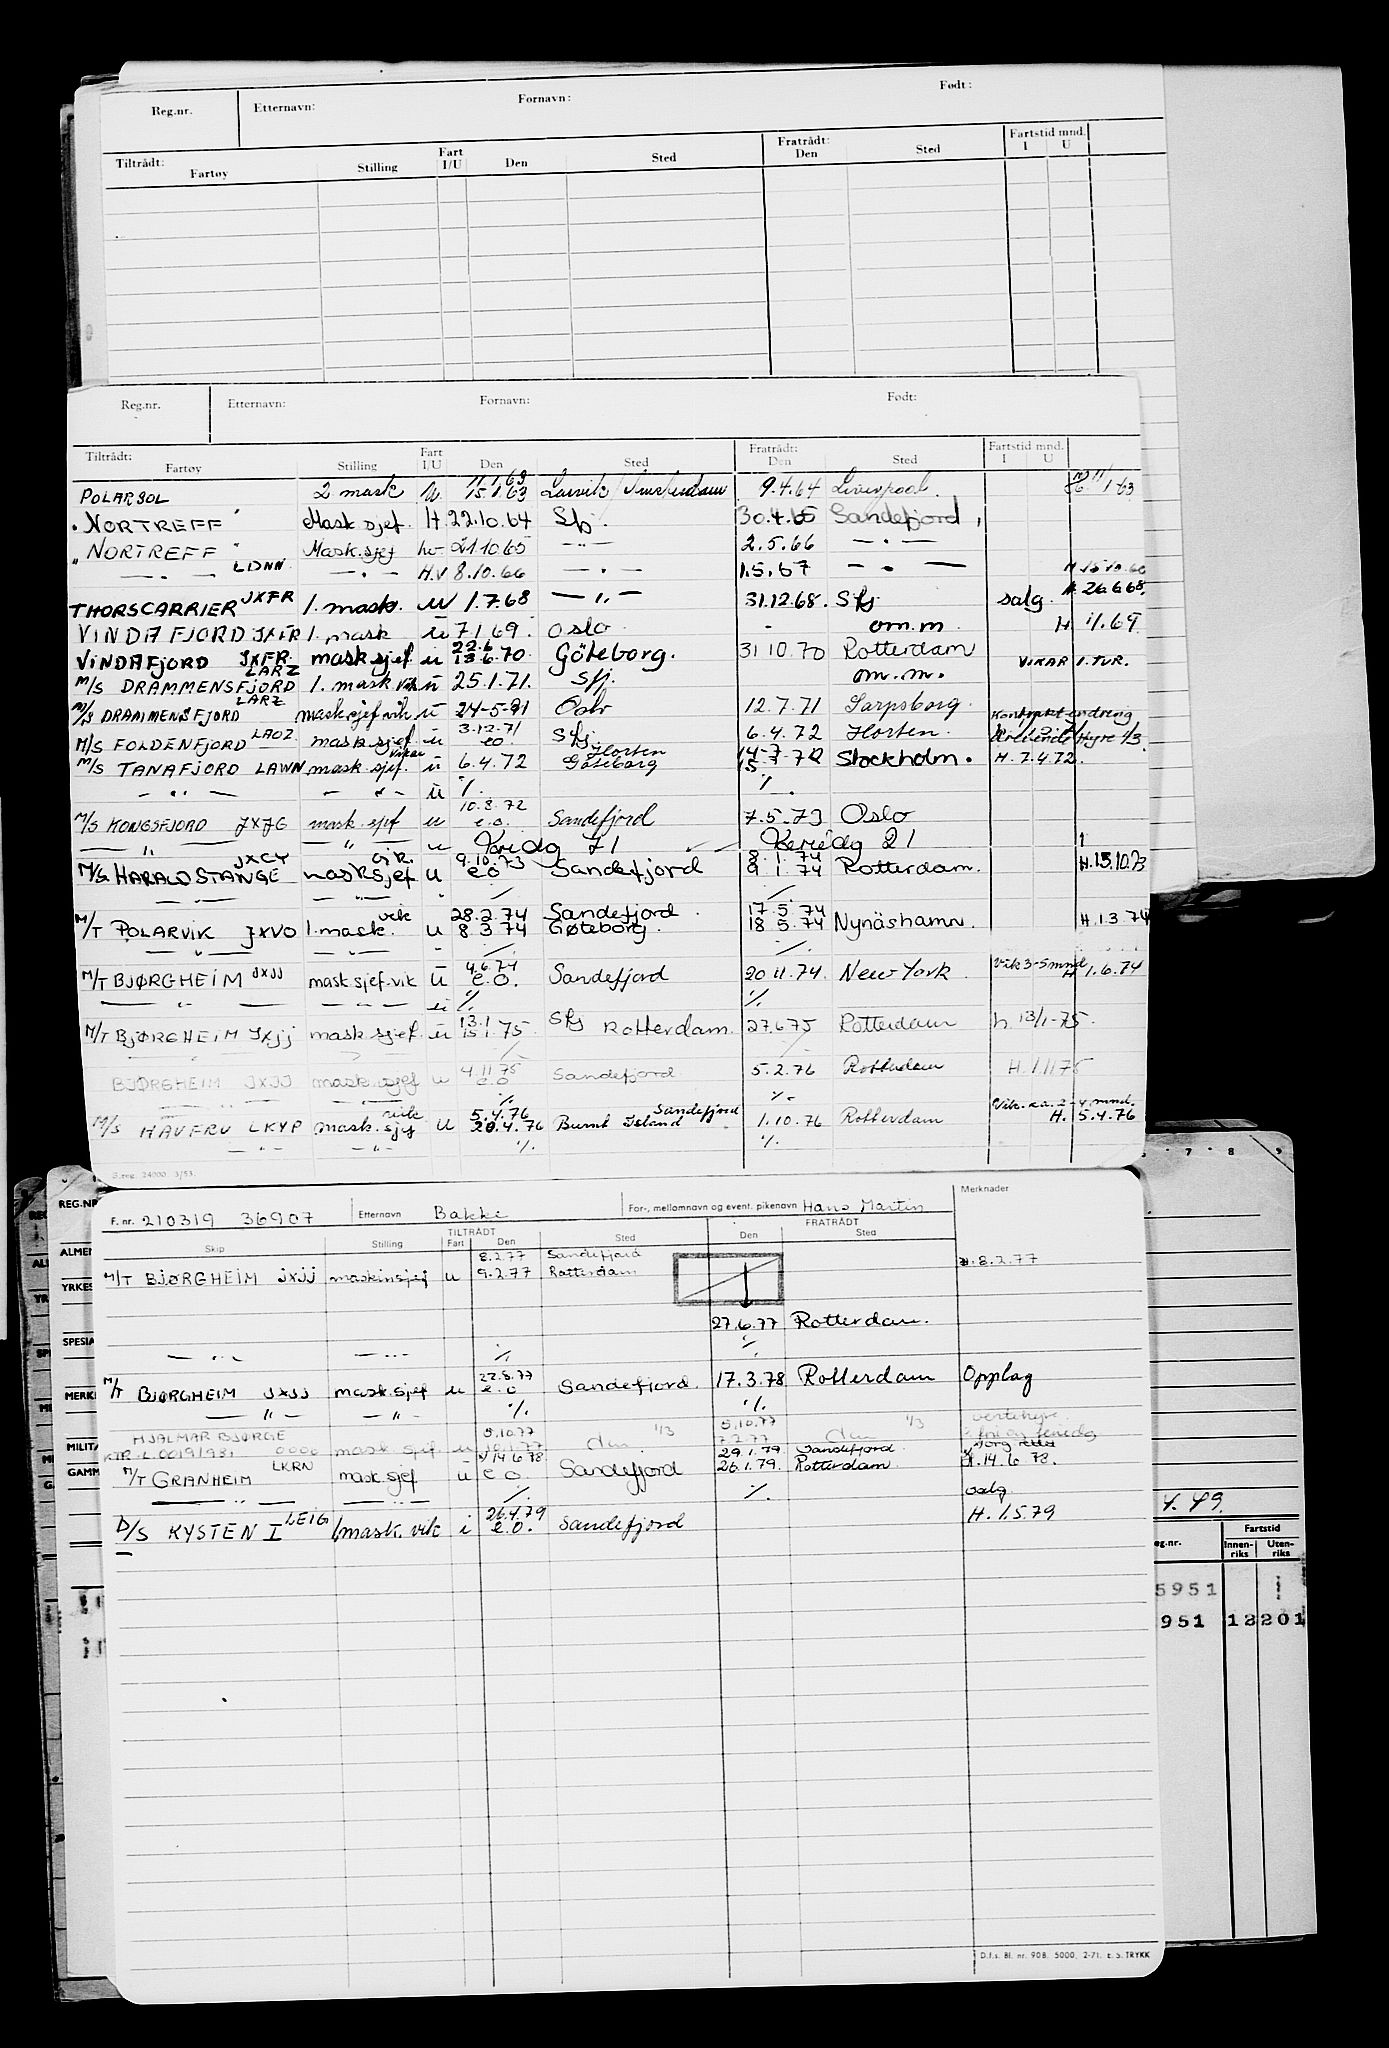 Reg.nr. Etternavn: Fornavn: Født:
Tiltrådt: Fartøy Stilling Fart I/U Den Sted Fratrådt: Den Sted Fartstid mnd. I U
Reg.nr. Etternavn: Fornavn: Født:
Tiltrådt: Fartøy Stilling Fart I/U Den Sted Fratrådt: Den Sted Fartstid mnd. I U
11.1.63
POLARSOL 2 mask 15.1.63 Larvik / Amsterdam 9.4.64 Liverpool. 11/1-63
" NORTREFF " Mask sjef. H. 22.10.64 Sfj. 30.4.65 Sandefjord
" NORTREFF " Mask.sjef hv 21.10.65 — " — 2.5.66 — " —
— " — LDNN — " — H.V 8.10.66 — " — 1.5.67 — " —
THORSCARRIER JXFR 1. mask. U 1.7.68 — " — 31.12.68. Sfj salg. H. 26.6.68.
VINDAFJORD JXFR 1. mask ü 7.1.69. Oslo - om.m. H 1/1.69
22.6
VINDAFJORD JXFR mask sjef ü 13.6.70. Göteborg. 31.10.70 Rotterdam VIKAR 1. TUR.
M/S DRAMMENSFJORD LARZ 1. mask vik ü 25.1.71. Sfj. om.m.
M/S DRAMMENSFJORD LARZ mask.sjef vik ü 24-5-71 Oslo 12.7.71 Sarpsborg. Kontraktendring
3.12.71
M/S FOLDENFJORD LAOZ mask sjef ü eo Sfj 6.4.72 Horten. Hyre 1/3
M/S TANAFJORD LAWN mask sjef. vikar ü 6.4.72 Horten Göteborg 14-7-72 15 Stockholm. H. 7.4.72.
— " — — " — ü %. %.
10.8.72
M/S KONGSFJORD JXJG mask. sjef u e.o. Sandefjord 7.5.73 Oslo
— " — — " — u Feriedg 71 Feriedg 21
9.10.73 8.1.74
M/S HARALD STANGE JXCY mask sjef vik. u eo Sandefjord 9.1.74 Rotterdam. H.15.10.73
— " — — " — %. %.
28.2.74 Sandefjord 17.5.74
M/T POLARVIK JXVO 1.mask. vik u 8.3.74 Gøteborg. 18.5.74 Nynäshamn. H.1.3.74
— " — — " — %. %.
4.6.74
M/T BJØRGHEIM JXJJ mask sjef.vik ü e.o. Sandefjord 20.11.74. New York. Vik 3-5 mnd H 1.6.74
— " — — " — ü %. %.
13.1
M/T BJØRGHEIM JXJJ mask sjef. ü 15.1.75. Sfj Rotterdam. 27.6.75 Rotterdam h. 13/1-75.
4.11.75
BJØRGHEIM JXJJ mask. sjef u e.o Sandefjord 5.2.76 Rotterdam H.1.11.75
%. %.
5.4.76 Sandefjord Vik. ca. 2-4 mnd.
M/S HAVFRU LKYP mask. sjef vik u 20.4.76 Burnt Island 1.10.76 Rotterdam H. 5.4.76
— " — — " — %. %.
S.reg. 24000 3/53.
F. nr. 210319 36907 Etternavn Bakke For-, mellomnavn og event. pikenavn Hans Martin Merknader
TILTRÅDT FRATRÅDT
Skip Stilling Fart Den Sted Den Sted
8.2.77 Sandefjord
M/T BJØRGHEIM JXJJ maskinsjef u 9.2.77 Rotterdam H. 8.2.77
27.6.77 Rotterdam.
— " — — " — %. %.
22.8.77
M/T BJØRGHEIM JXJJ mask.sjef u e.o Sandefjord. 17.3.78 Rotterdam Opplag
— " — — " — %. %.
HJALMAR BJØRGE 5.10.77 1/3 5.10.77 1/3 ventehyre
0000 mask sjef.
14.6.78 29.1.79 Sandefjord
M/T GRANHEIM LKRN mask.sjef ü e.o. Sandefjord 26.1.79. Rotterdam H.14.6.78.
— " — — " — %. %. salg
26.4.79
D/S KYSTEN I LEIG 1mask. vik i e.o. Sandefjord H. 1.5.79
D.f.s. Bl. nr. 908. 5000. 2-71. E. S. TRYKK
REG.NR
YRKES
SPESIA
MERK
MILITÆ
GAMM
7 8 9
4.49.
eg.nr. Fartstid
Innen-riks Uten-riks
5951
951 12 201